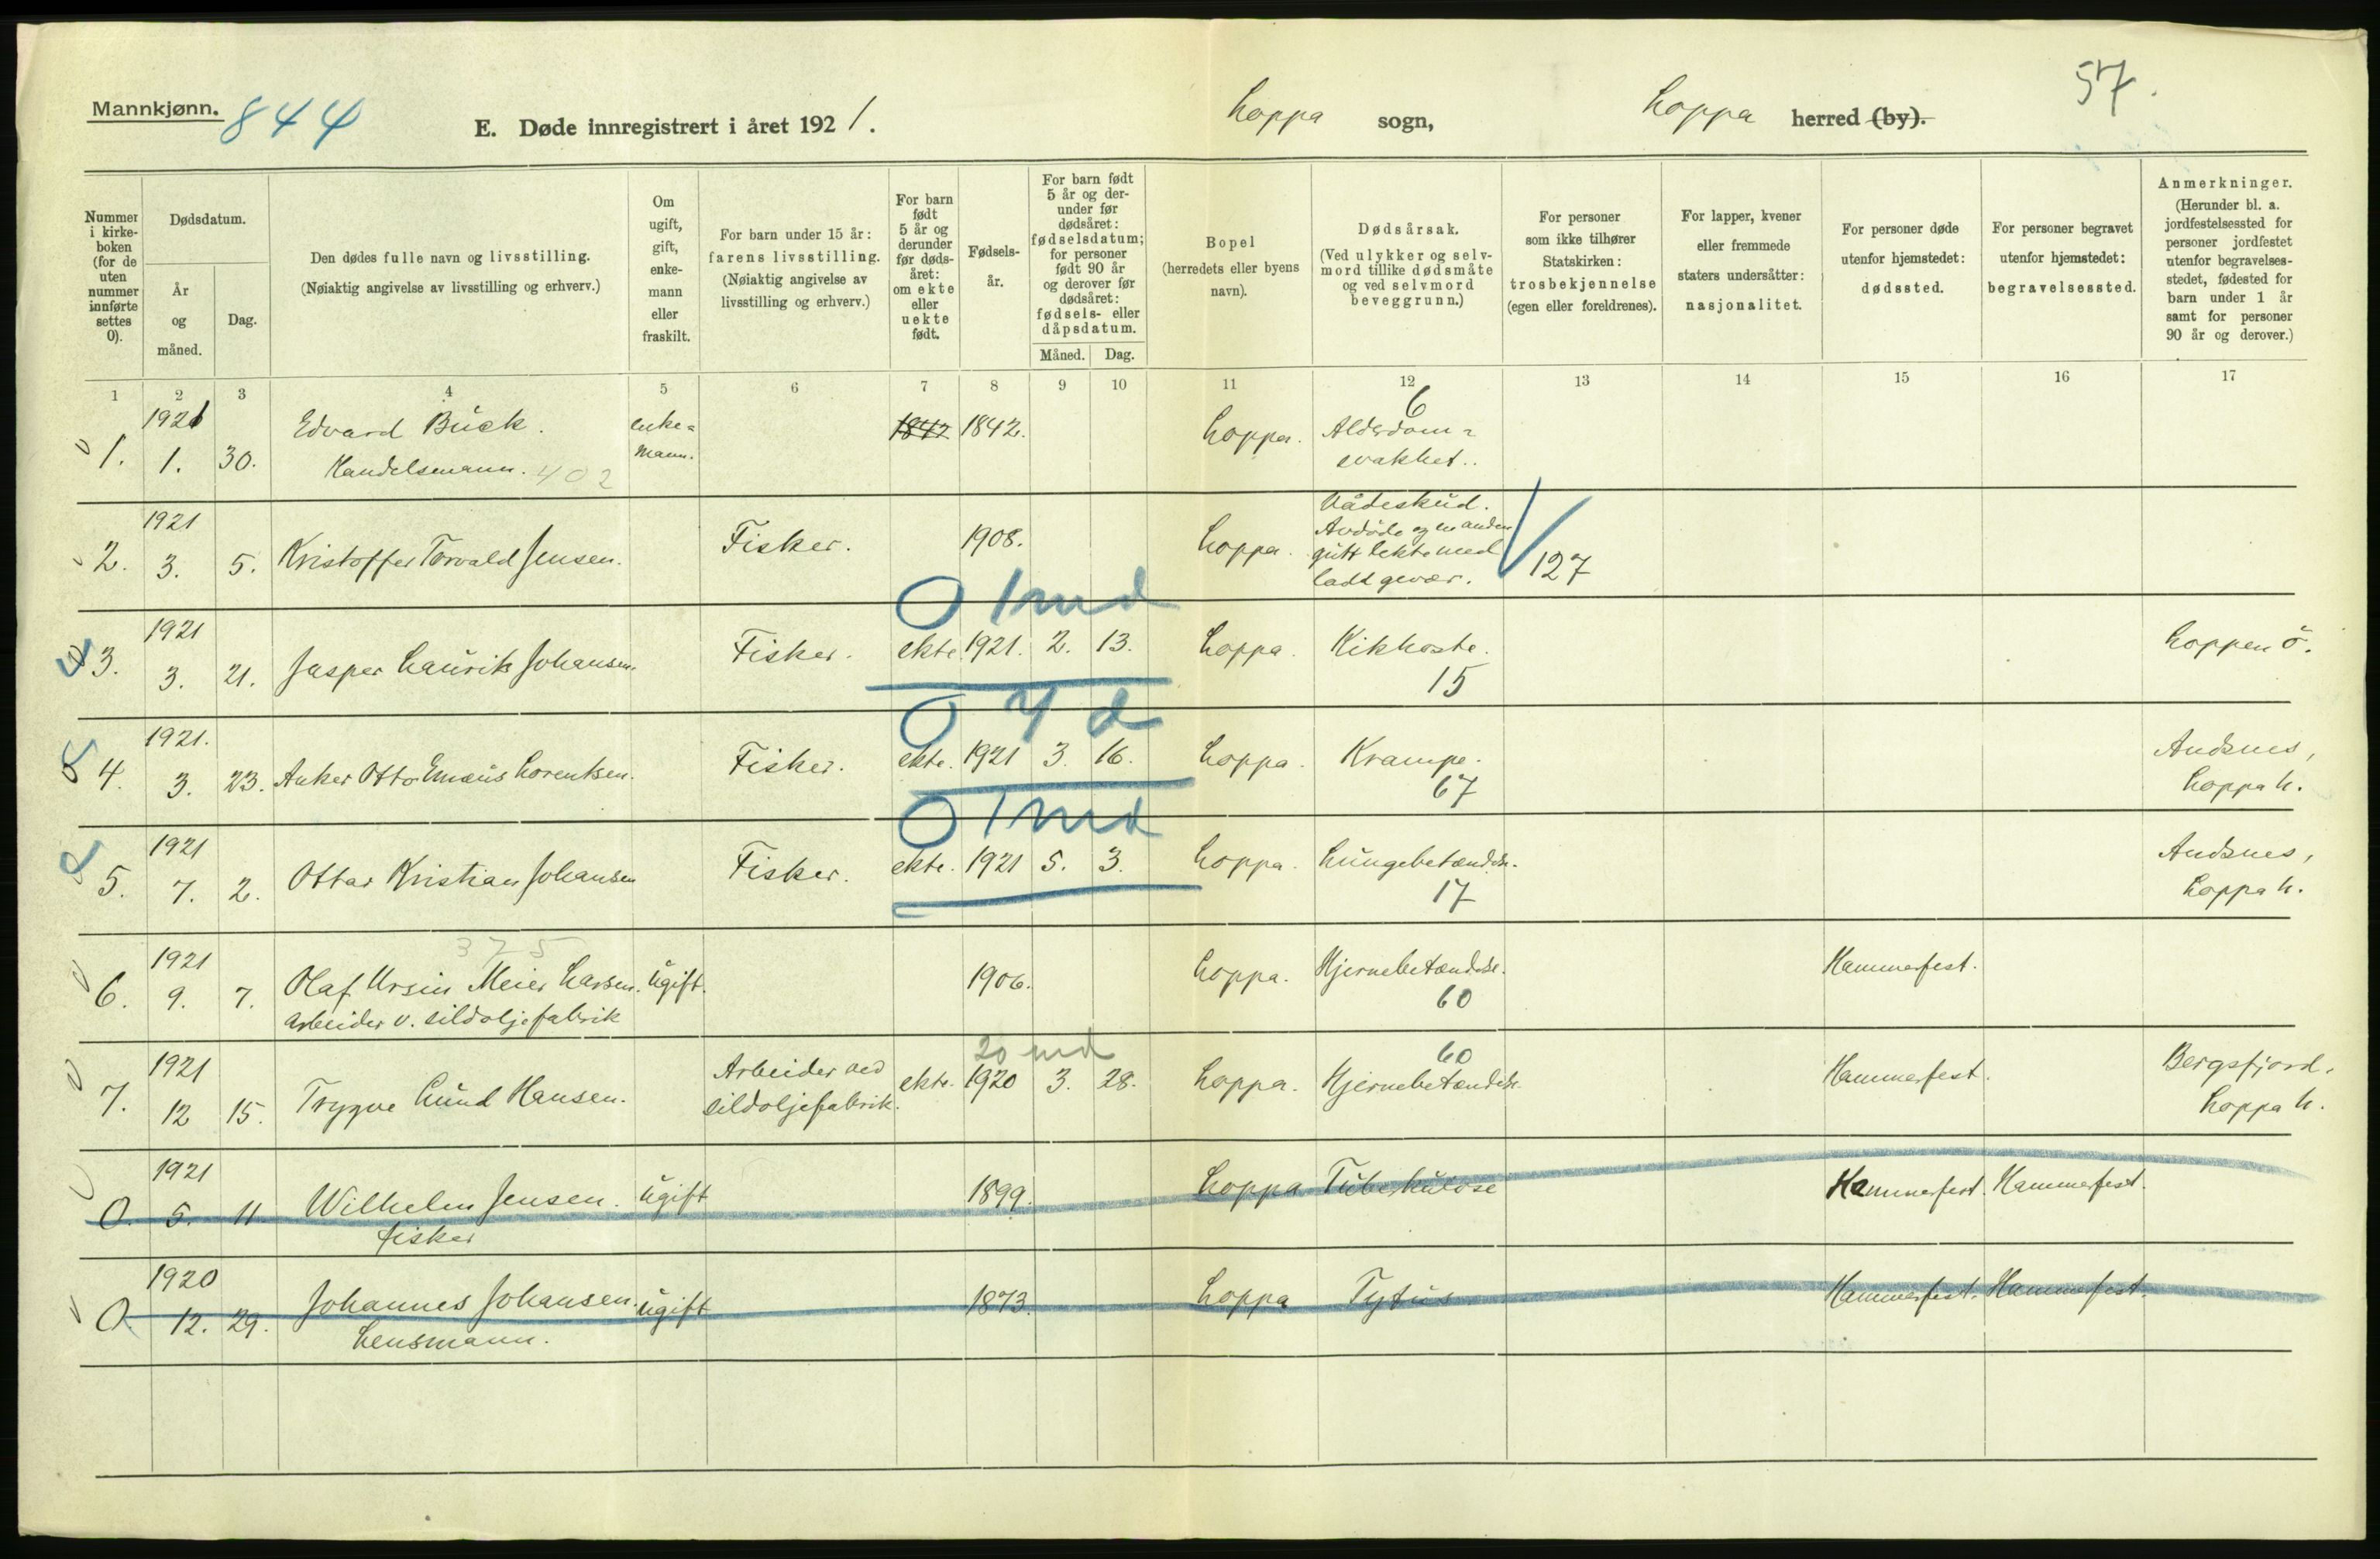 Mannkjønn. 844
E. Døde innregistrert i året 1921.
Loppa sogn,
Loppa herred (by).
57.
Nummer
i kirke-
boken
(for de
uten
nummer
innførte
settes
0).
Dødsdatum.
År
og
måned.
Dag.
Den dødes fulle navn og livsstilling.
(Nøiaktig angivelse av livsstilling og erhverv.)
Om
ugift,
gift,
enke-
mann
eller
fraskilt.
For barn under 15 år:
farens livsstilling.
(Nøiaktig angivelse av
livsstilling og erhverv.)
For barn
født
5 år og
derunder
før døds-
året:
om ekte
eller
uekte
født.
Fødsels-
år.
For barn født
5 år og der-
under før
dødsåret:
fødselsdatum;
for personer
født 90 år
og derover før
dødsåret:
fødsels- eller
dåpsdatum.
Måned. Dag.
Bopel
(herredets eller byens
navn).
Dødsårsak.
(Ved ulykker og selv-
mord tillike dødsmåte
og ved selvmord
beveggrunn.)
For personer
som ikke tilhører
Statskirken:
trosbekjennelse
(egen eller foreldrenes).
For lapper, kvener
eller fremmede
staters undersåtter:
nasjonalitet.
For personer døde
utenfor hjemstedet:
dødssted.
For personer begravet
utenfor hjemstedet:
begravelsessted.
Anmerkninger.
(Herunder bl. a.
jordfestelsessted for
personer jordfestet
utenfor begravelses-
stedet, fødested for
barn under 1 år
samt for personer
90 år og derover.)
1 2 3 4 5 6 7 8 9 10 11 12 13 14 15 16 17
1921 6
1. 1. 30. Edvard Buck. enke= 1842 1842. Loppa. Alderdom=
Handelsmann. 402 mann. svakhet..
1921 Vådeskud.
2. 3. 5. Kristoffer Torvald Jensen. Fisker. 1908. Loppa. Avdöde og en anden
gutt lekte med
ladt gevær. 127
0 1 md
1921
3. 3. 21. Jasper Laurik Johansen. Fisker. ekte. 1921. 2. 13. Loppa. Kikhoste. Loppen ö.
15
0 7 d
1921.
4. 3. 23. Anker Otto Emæus Lorentsen. Fisker. ekte. 1921 3. 16. Loppa. Krampe. Andsnes,
67 Loppa h.
0 1 md
1921
5. 7. 2. Ottar Kristian Johansen Fisker. ekte. 1921 5. 3. Loppa. Lungebetændelse. Andsnes,
17 Loppa h.
375
1921
6. 9. 7. Olaf Ursin Meier Larsen. ugift. 1906. Loppa. Hjernebetændelse. Hammerfest.
Arbeider v. sildoljefabrik 60
20 md 60
1921
7. 12 15. Trygve Lund Hansen. Arbeider ved ekte. 1920 3. 28. Loppa. Hjernebetændelse. Hammerfest. Bergsfjord,
sildoljefabrik. Loppa h.
1921
0. 5. 11. Wilhelm Jensen. ugift 1899. Loppa Tuberkulose Hammerfest. Hammerfest.
fisker
1920
0. 12. 29. Johannes Johansen. ugift 1873. Loppa Tyfus Hammerfest. Hammerfest.
Lensmann.